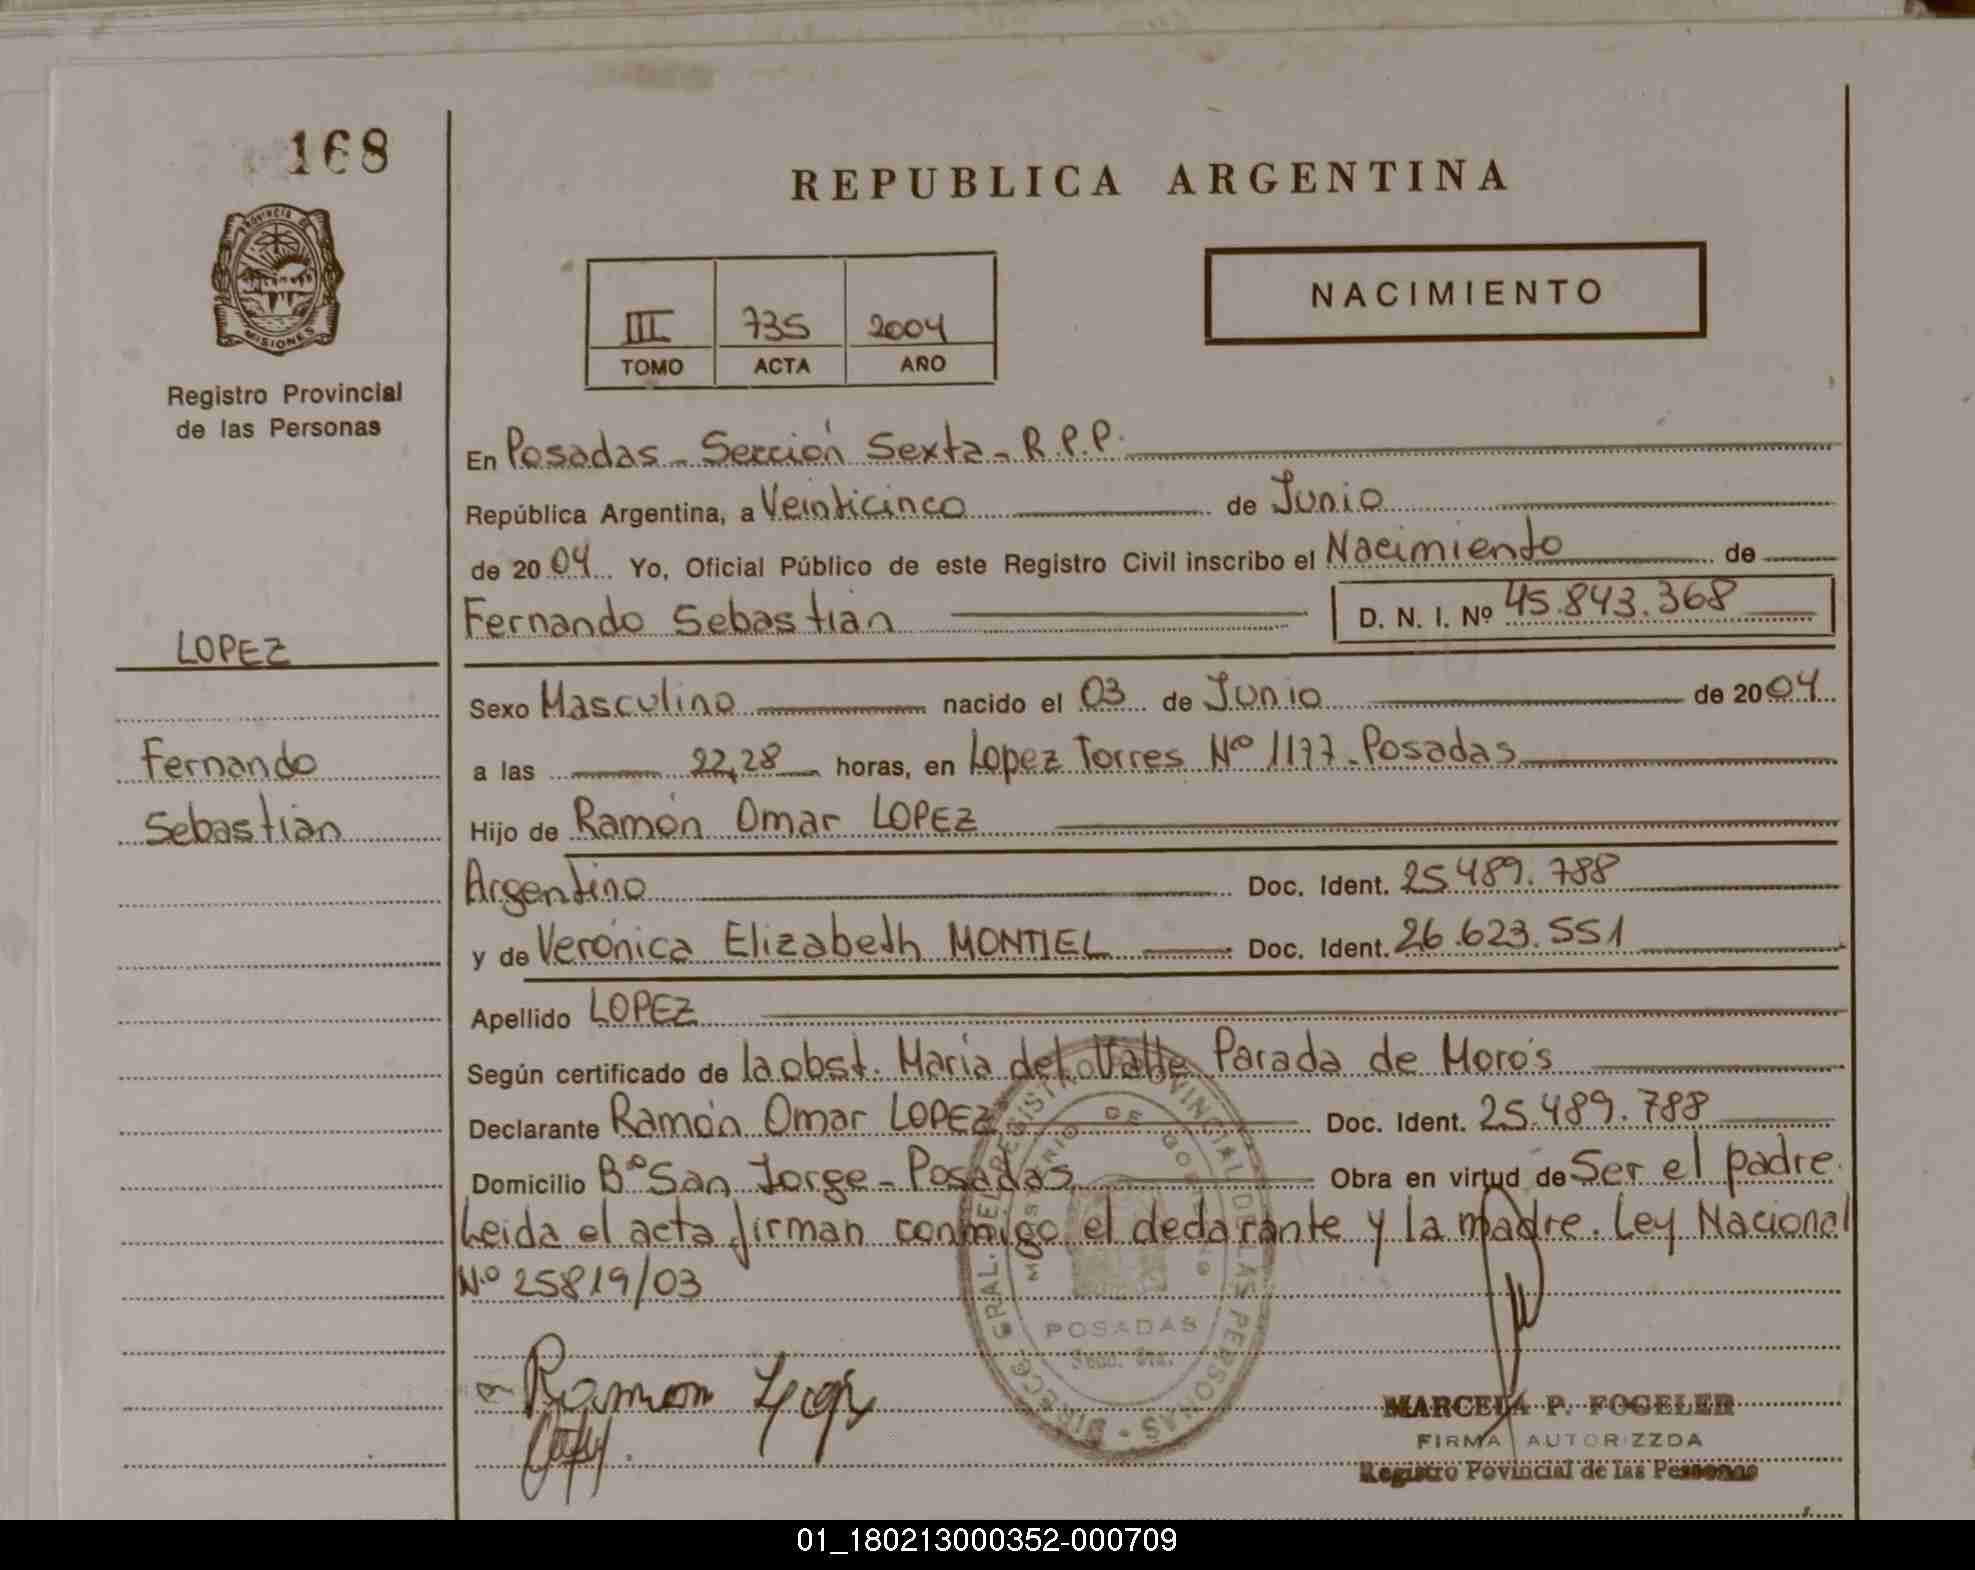 168
PROVINCIA DE
MISIONES
Registro Provincial
de las Personas
LOPEZ
Fernando
Sebastián
REPUBLICA ARGENTINA
III 735 2004
TOMO ACTA AÑO
NACIMIENTO
En Posadas - Sección Sexta - R.P.P.
República Argentina, a Veinticinco de Junio
de 2004 Yo, Oficial Público de este Registro Civil inscribo el Nacimiento de
Fernando Sebastián D. N. I. Nº 45.843.368
Sexo Masculino nacido el 03 de Junio de 2004
a las 22,28 horas, en Lopez Torres Nº 1177 - Posadas
Hijo de Ramón Omar LOPEZ
Argentino Doc. Ident. 25.489.788
y de Verónica Elizabeth MONTIEL Doc. Ident. 26.623.551
Apellido LOPEZ
Según certificado de la obst. Maria del Valle Parada de Moro's
Declarante Ramón Omar LOPEZ Doc. Ident. 25.489.788
Domicilio Bº San Jorge - Posadas Obra en virtud de Ser el padre.
Leida el acta firman conmigo el declarante y la madre. Ley Nacional
Nº 25819/03
DIRECC. GRAL. DEL REGISTRO PROVINCIAL DE LAS PERSONAS
MINISTERIO DE GOBIERNO
POSADAS
Ramon
MARCELA P. FOGELER
FIRMA AUTORIZZDA
Registro Povincial de las Personas
01_180213000352-000709